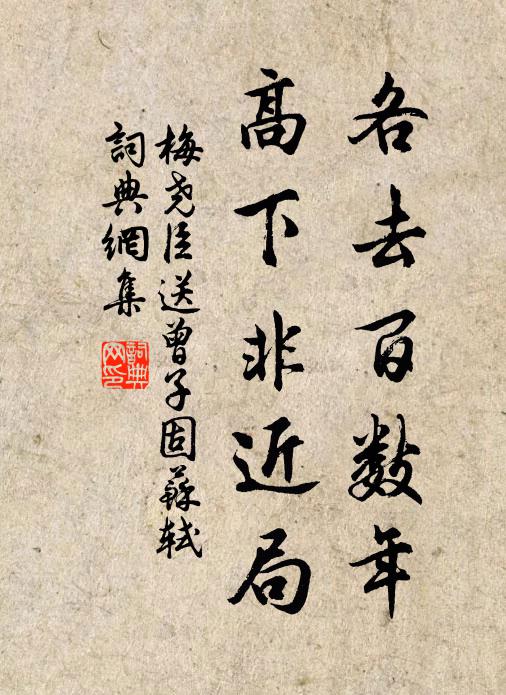 各去百数年
高下非近局
梅尧臣送曾子固蘇軾
詞典網集
詞典
网印